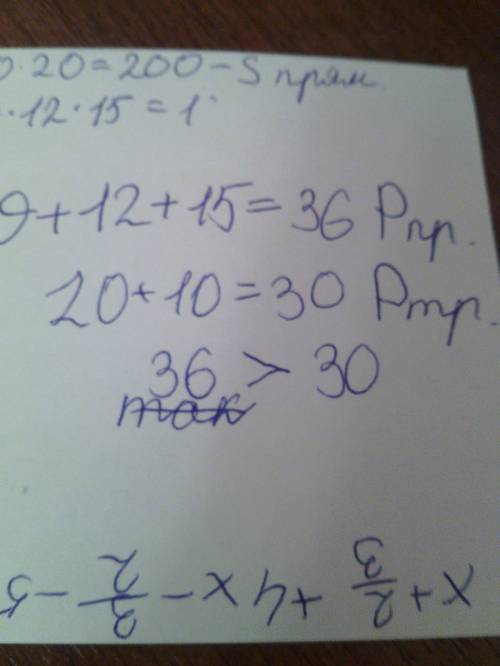 0·20=200-S прям.
·12·15=1
9+12+15=36 Pпр.
20+10=30 Pтр.
36 > 30
так
x+2/3+4x-3/2-5